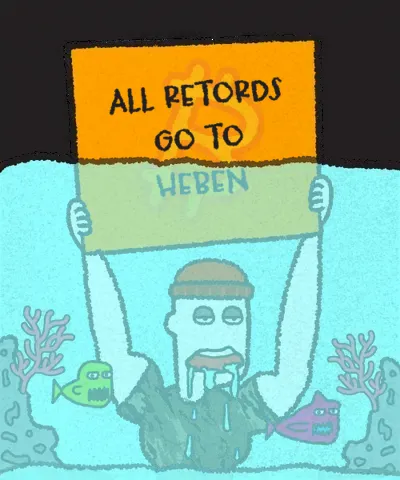 ALL RETORDS
GO TO
HEBEN